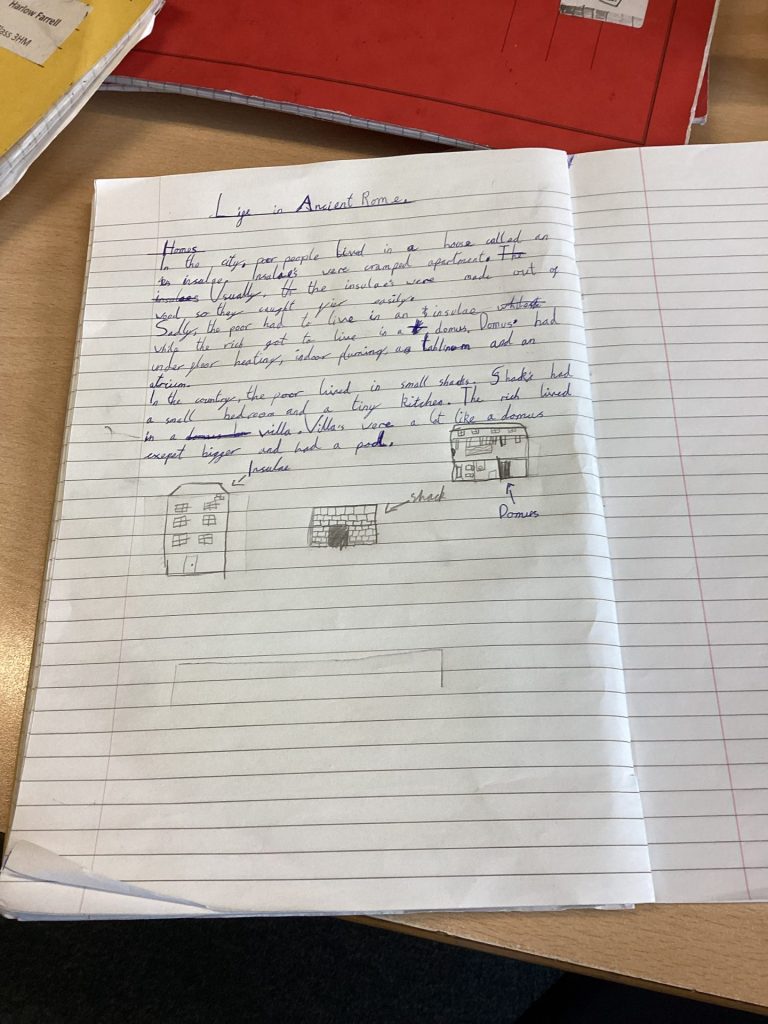 Harlow Farrell
Class 3HM
Life in Ancient Rome.
Homes
In the city, poor people lived in a house called an
insulae. Insulae's were cramped apartment. The
insulaes Usually, the insulaes were made out of
wood, so they caught fier easily.
Sadly, the poor had to live in an insulae
while the rich got to live in a domus. Domus' had
under floor heating, indoor pluming, a tablinum and an
atrium.
In the country, the poor lived in small shacks. Shack's had
a small bedroom and a tiny kitchen. The rich lived
in a domus villa. Villa's were a lot like a domus
exepet bigger and had a pool.
Insulae
shack
Domus